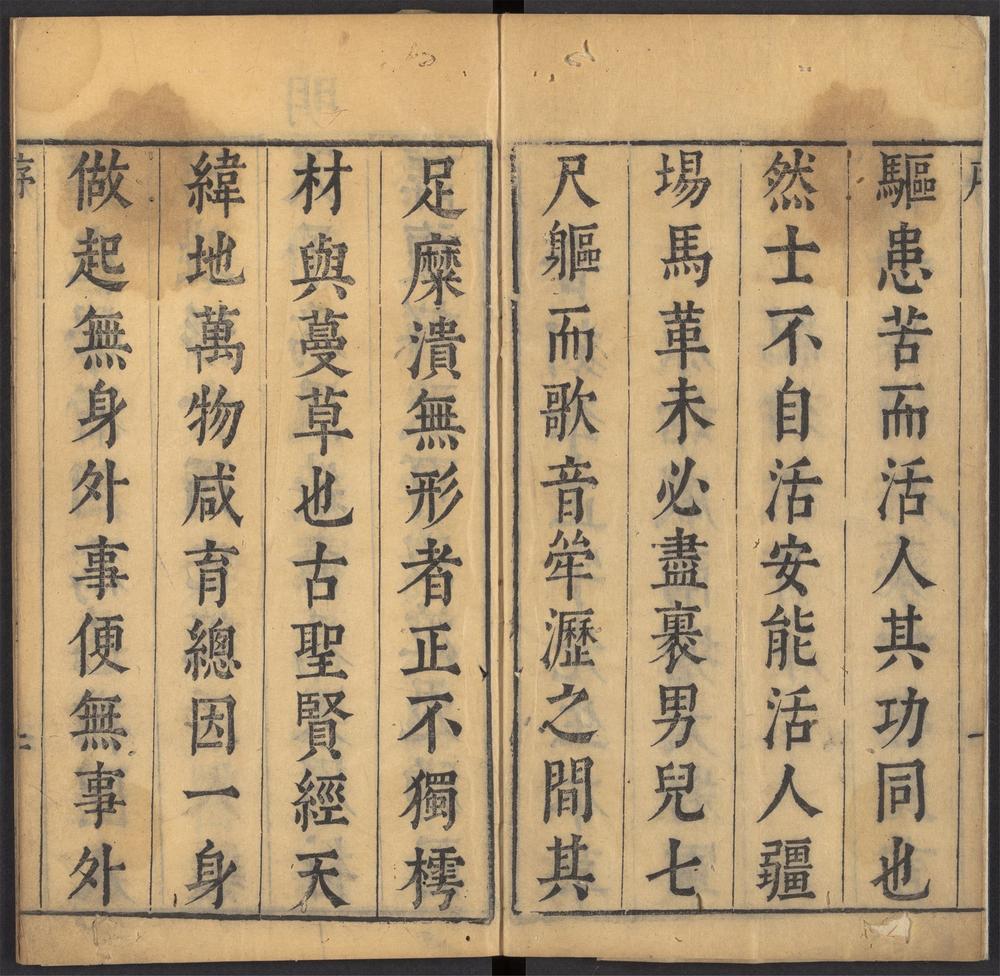 驅患苦而活人其功同也
然士不自活安能活人疆
場馬革未必盡裹男兒七
尺軀而歌音笙瀝之間其
足糜潰無形者正不獨樗
材與蔓草也古聖賢經天
緯地萬物咸育總因一身
做起無身外事便無事外
序